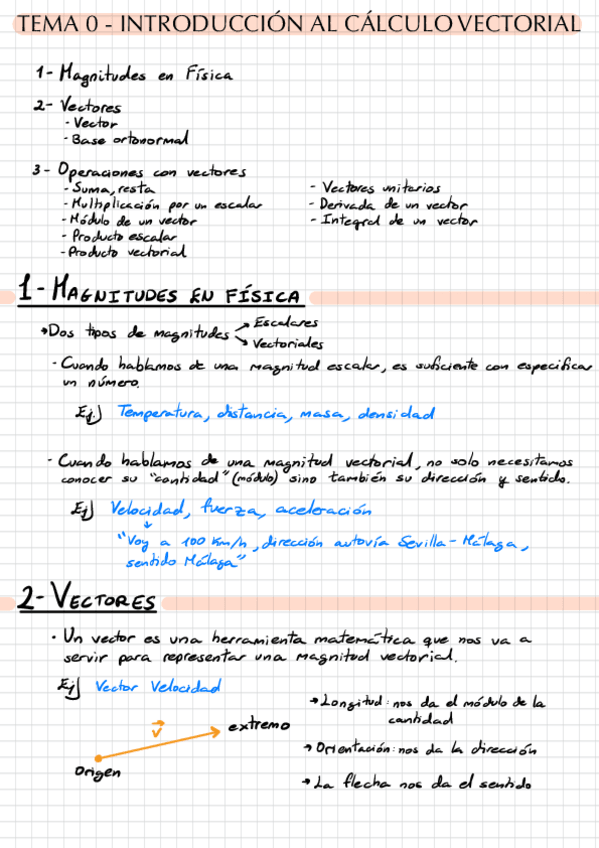 TEMA 0 - INTRODUCCIÓN AL CÁLCULO VECTORIAL
1- Magnitudes en Física
2- Vectores
- Vector
- Base ortonormal
3- Operaciones con vectores
- Suma, resta
- Multiplicación por un escalar
- Módulo de un vector
- Producto escalar
- Producto vectorial
- Vectores unitarios
- Derivada de un vector
- Integral de un vector
1- MAGNITUDES EN FÍSICA
→Dos tipos de magnitudes → Escalares
→ Vectoriales
- Cuando hablamos de una magnitud escalar, es suficiente con especificar
un número.
Ej) Temperatura, distancia, masa, densidad
- Cuando hablamos de una magnitud vectorial, no solo necesitamos
conocer su "cantidad" (módulo) sino también su dirección y sentido.
Ej) Velocidad, fuerza, aceleración
↓
"Voy a 100 Km/h, dirección autovía Sevilla-Málaga,
sentido Málaga"
2- VECTORES
· Un vector es una herramienta matemática que nos va a
servir para representar una magnitud vectorial.
Ej) Vector Velocidad
v⃗
extremo
Origen
→ Longitud: nos da el módulo de la
cantidad
→ Orientación: nos da la dirección
→ La flecha nos da el sentido